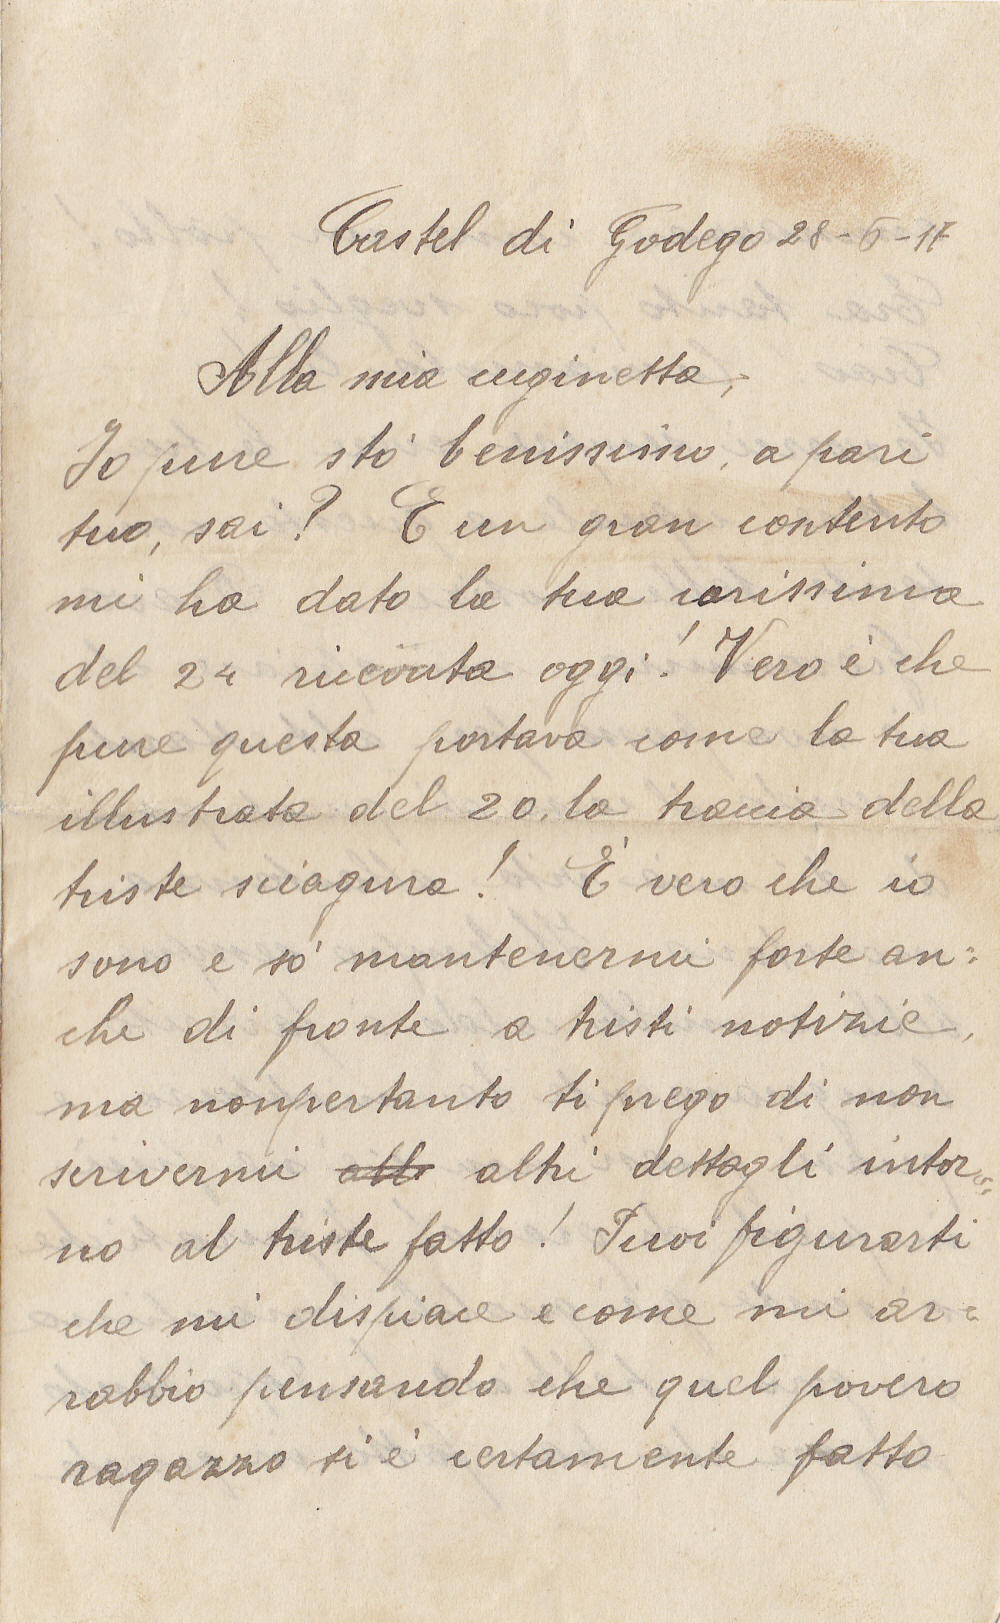 Castel di Godego 28-6-17
Alla mia cuginetta,
Io pure stò benissimo, a pari
tuo, sai? E un gran contento
mi ha dato la tua carissima
del 24 ricevuta oggi! Vero è che
pure questa portava come la tua
illustrata del 20, la traccia della
triste sciagura! È vero che io
sono e sò mantenermi forte an=
che di fronte a tristi notizie,
ma nonpertanto ti prego di non
scrivermi altri dettagli intor=
no al triste fatto! Puoi figurarti
che mi dispiace e come mi ar=
rabbio pensando che quel povero
ragazzo si è certamente fatto